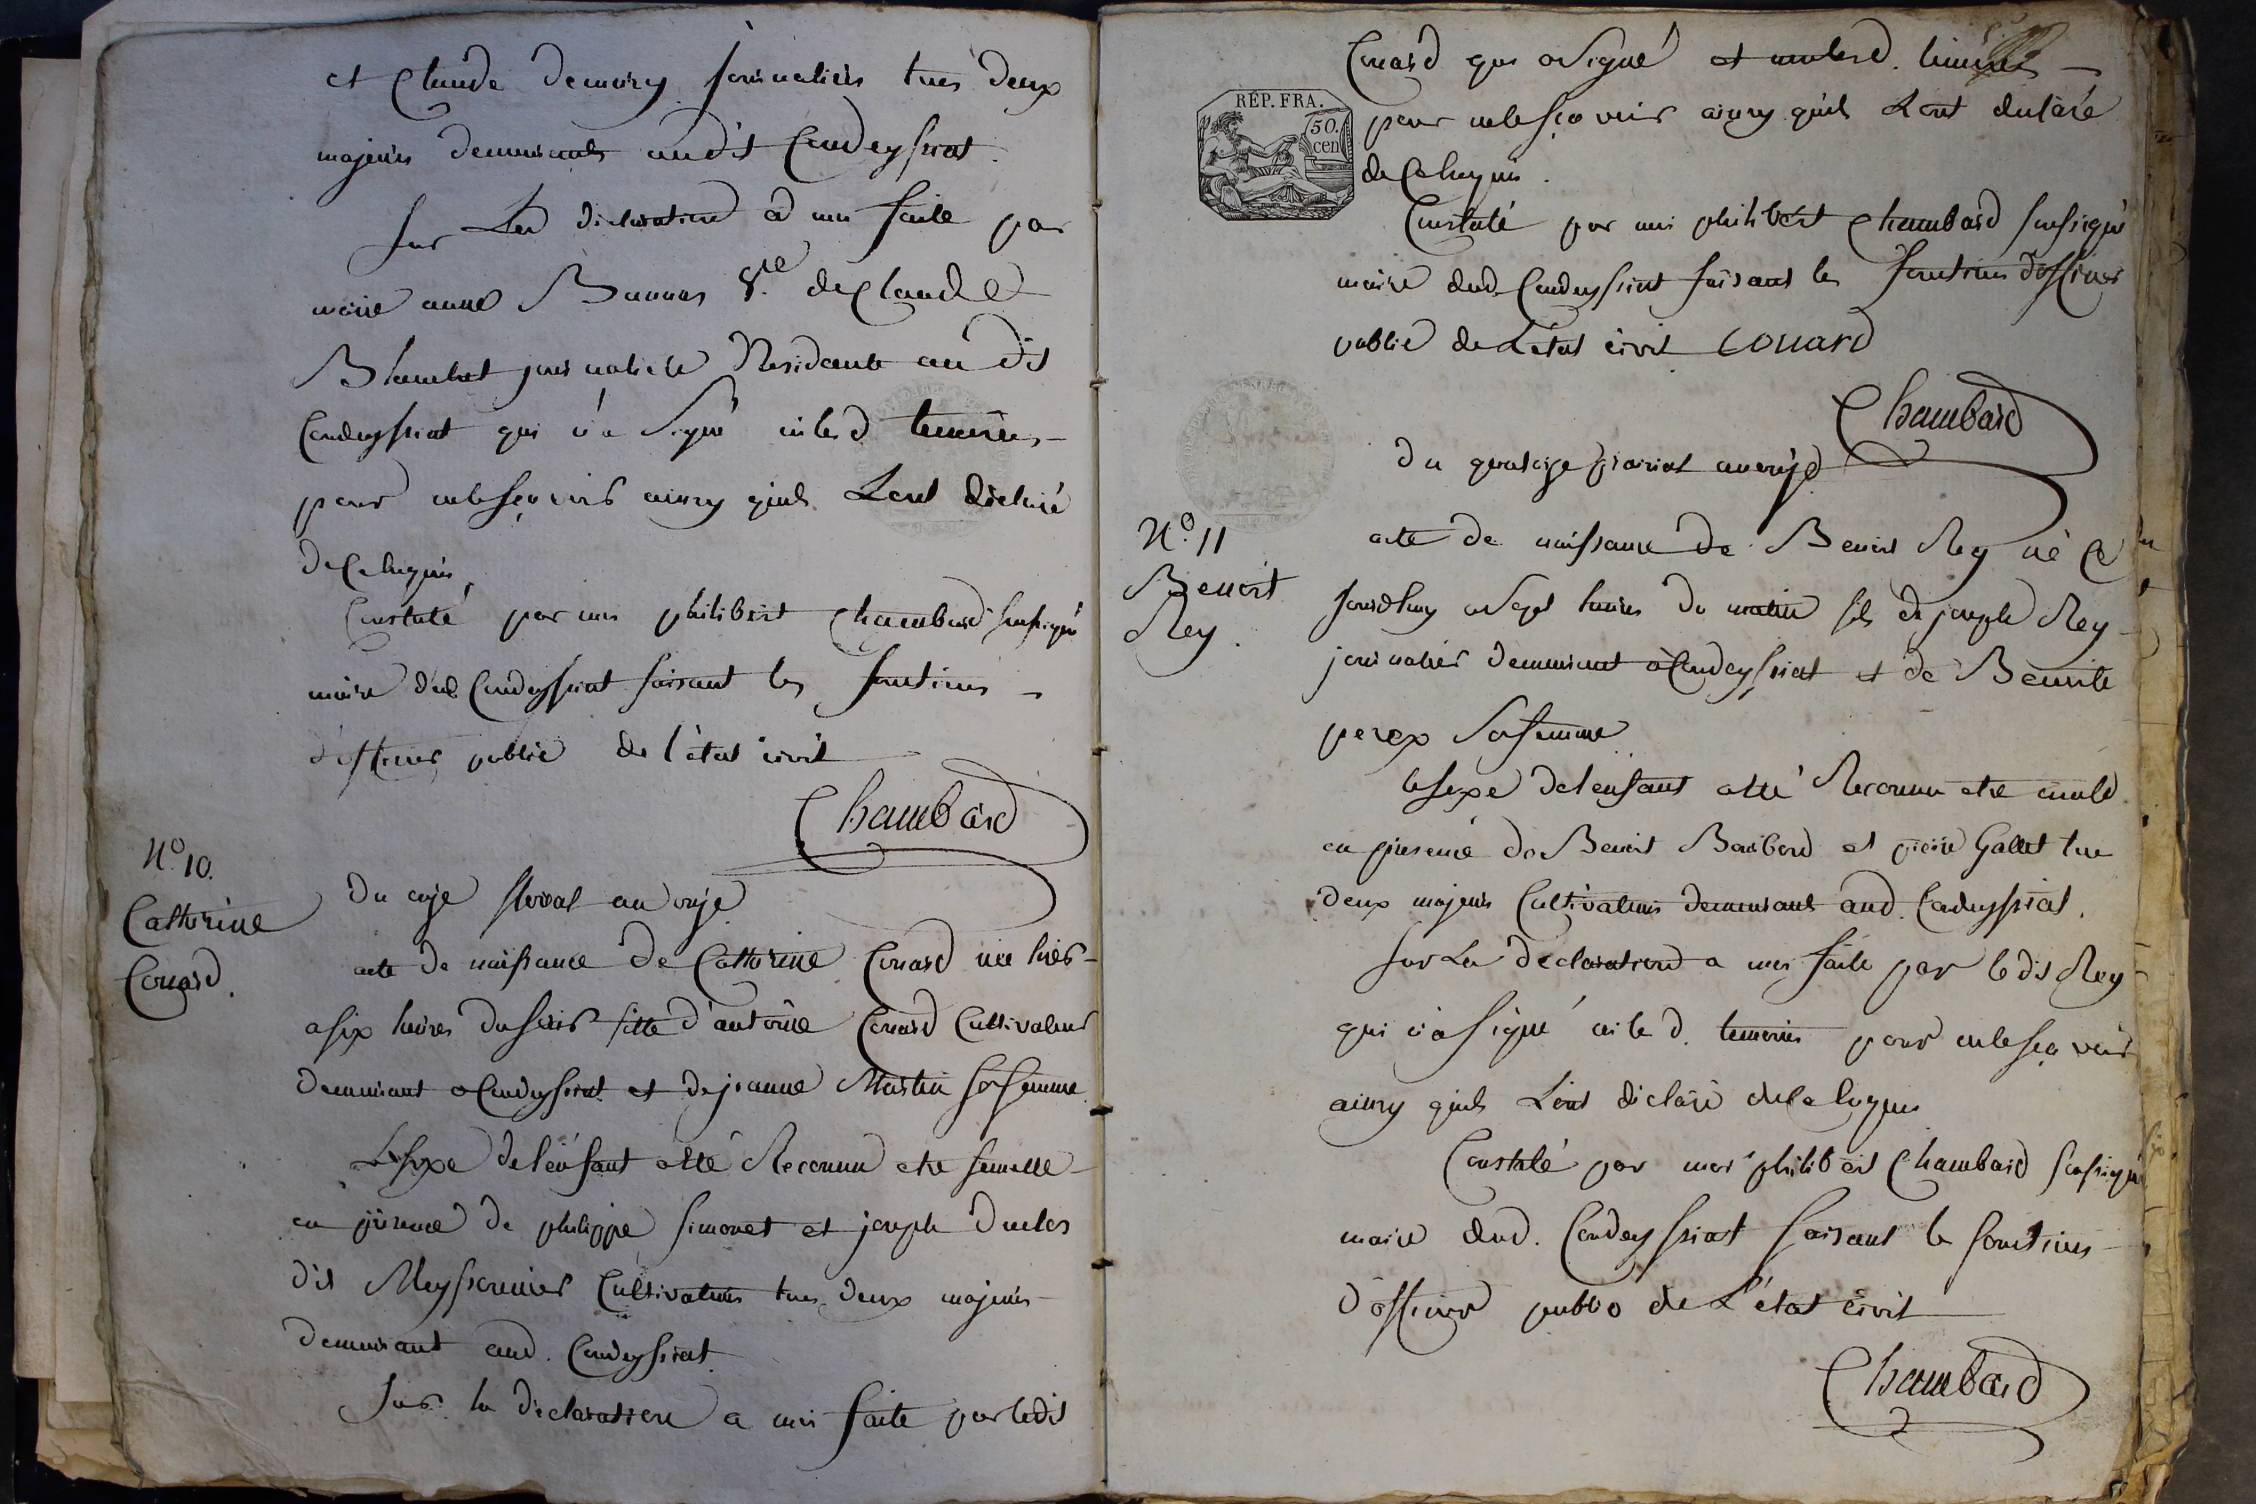 et Claude Demoiry journaliers tous deux
majeurs demeurants audit Condeyssiat.
Sur La déclaration à moi faite par
marie anne Bannas V.ve de Claude
Blambet journaliere Residante audit
Condeyssiat qui n'a Signé ni lesd temoins
pour ne le sçavoir ainsy quils L'ont déclaré
de Ce Requis.
Constaté par moi philibert Chambard soussigné
maire dud Condeyssiat faisant les fonctions
d'officier public de l'état civil
Chambard
N.o 10.
Catterine
Couard.
Du onze floreal an onze
acte de naissance de Catterine Couard née hier
a six heures du soir fille d'antoine Couard Cultivateur
demeurant a Condeyssiat et de jeanne Martin sa femme
Le sexe de l'enfant a été Reconnu etre femelle
en présence de philippe Simonet et joseph Duclos
dit Meyssonnier Cultivateurs tous deux majeurs
demeurant aud. Condeyssiat.
Sur la déclaration a moi faite par ledit
Couard qui a Signé et non lesd. temoins
RÉP. FRA.
50.
cen
pour ne le sçavoir ainsy quils L'ont déclaré
de Ce Requis.
Constaté par moi philibert Chambard soussigné
maire dud. Condeyssiat faisant les fonctions d'officier
public de L'état civil COUARD
Chambard
Du quatorze prairial an onze
N.o 11
Benoit
Rey.
acte de naissance de Benoit Rey né Ce
jourdhuy a Sept heures du matin fils de joseph Rey
journalier demeurant a Condeyssiat et de Benoite
perex Sa femme
le sexe de l'enfant a été Reconnu etre male
en présence de Benoit Bombard et piere Gallet tous
deux majeurs Cultivateurs demeurants aud. Condeyssiat.
Sur La déclaration a moi faite par le dit Rey
qui n'a Signé ni le d. temoins pour ne le sça voir
ainsy quils L'ont déclaré de Ce Requis
Constaté par moi philibert Chambard soussigné
maire dud. Condeyssiat faisant le fonctions
d'officier public de L'état civil
Chambard